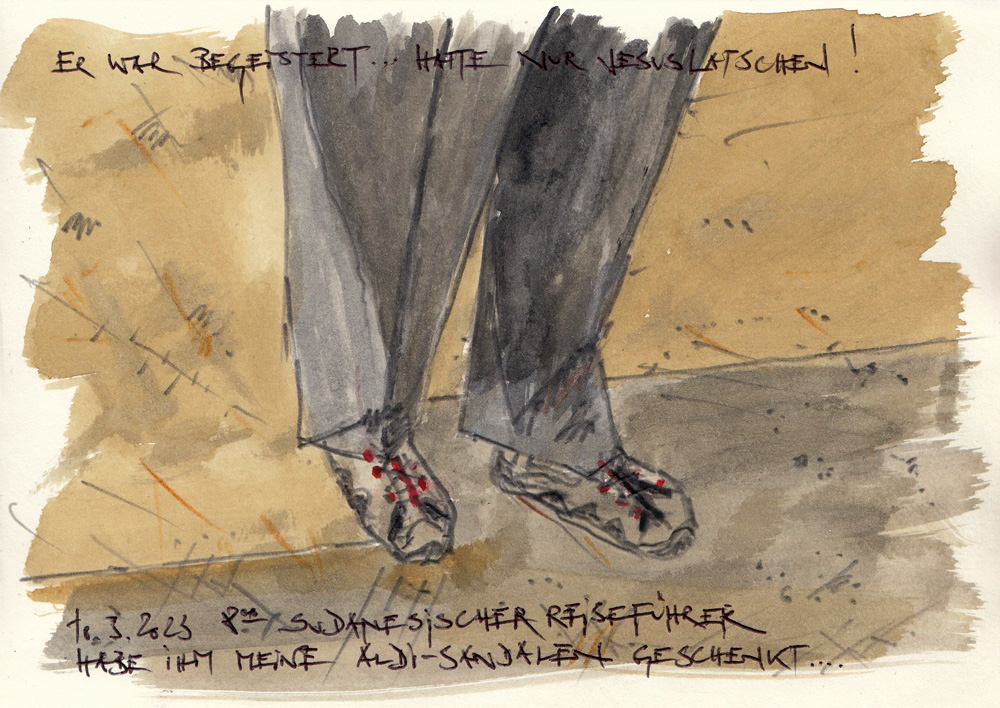 ER WAR BEGEISTERT... HATTE NUR JESUSLATSCHEN!
10.3.2023 SUDANESISCHER REISEFÜHRER
HABE IHM MEINE ALDI-SANDALEN GESCHENKT....